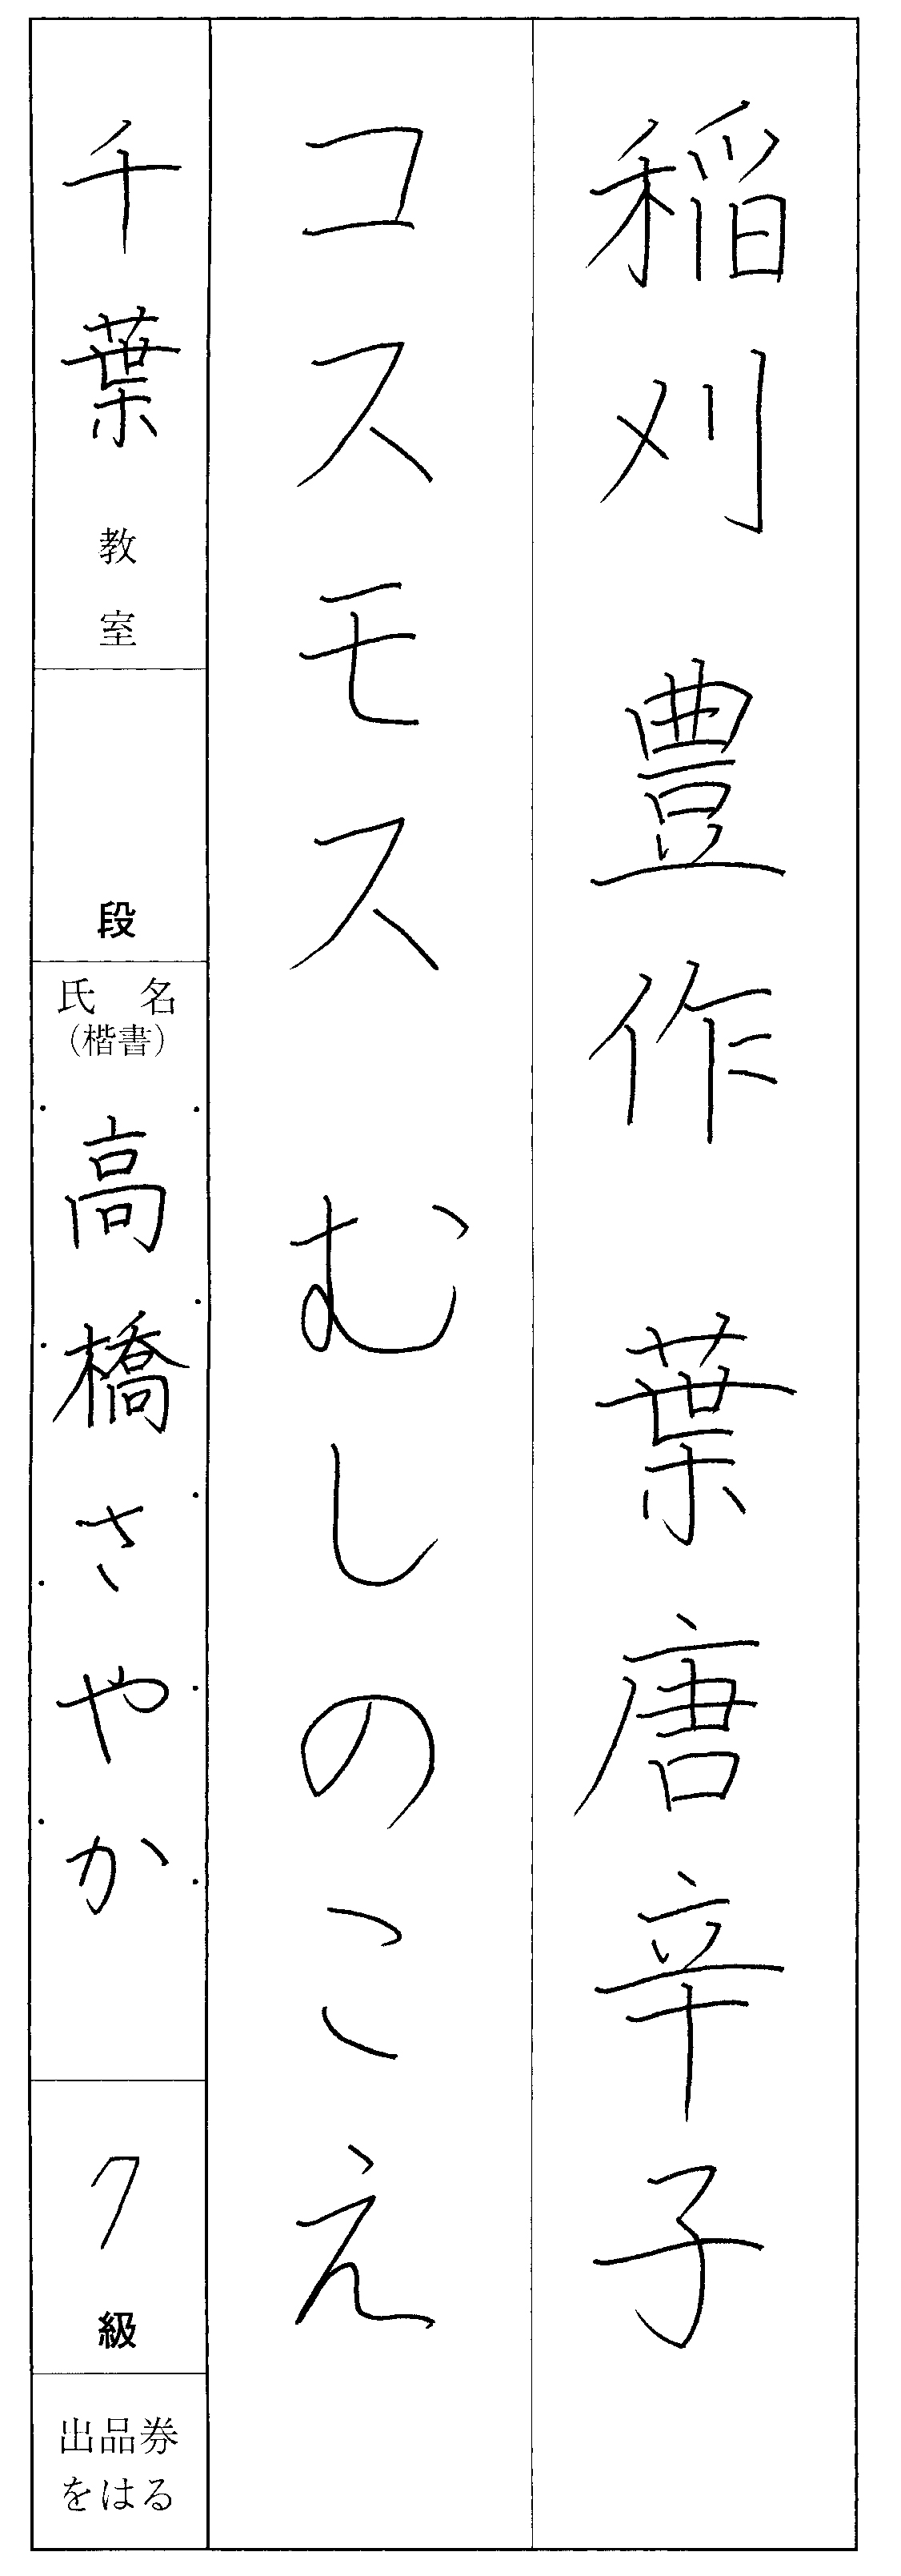 稲刈 豊作 葉唐辛子
コスモス むしのこえ
千葉教室
段
氏名
(楷書)
高橋さやか
7級
出品券
をはる